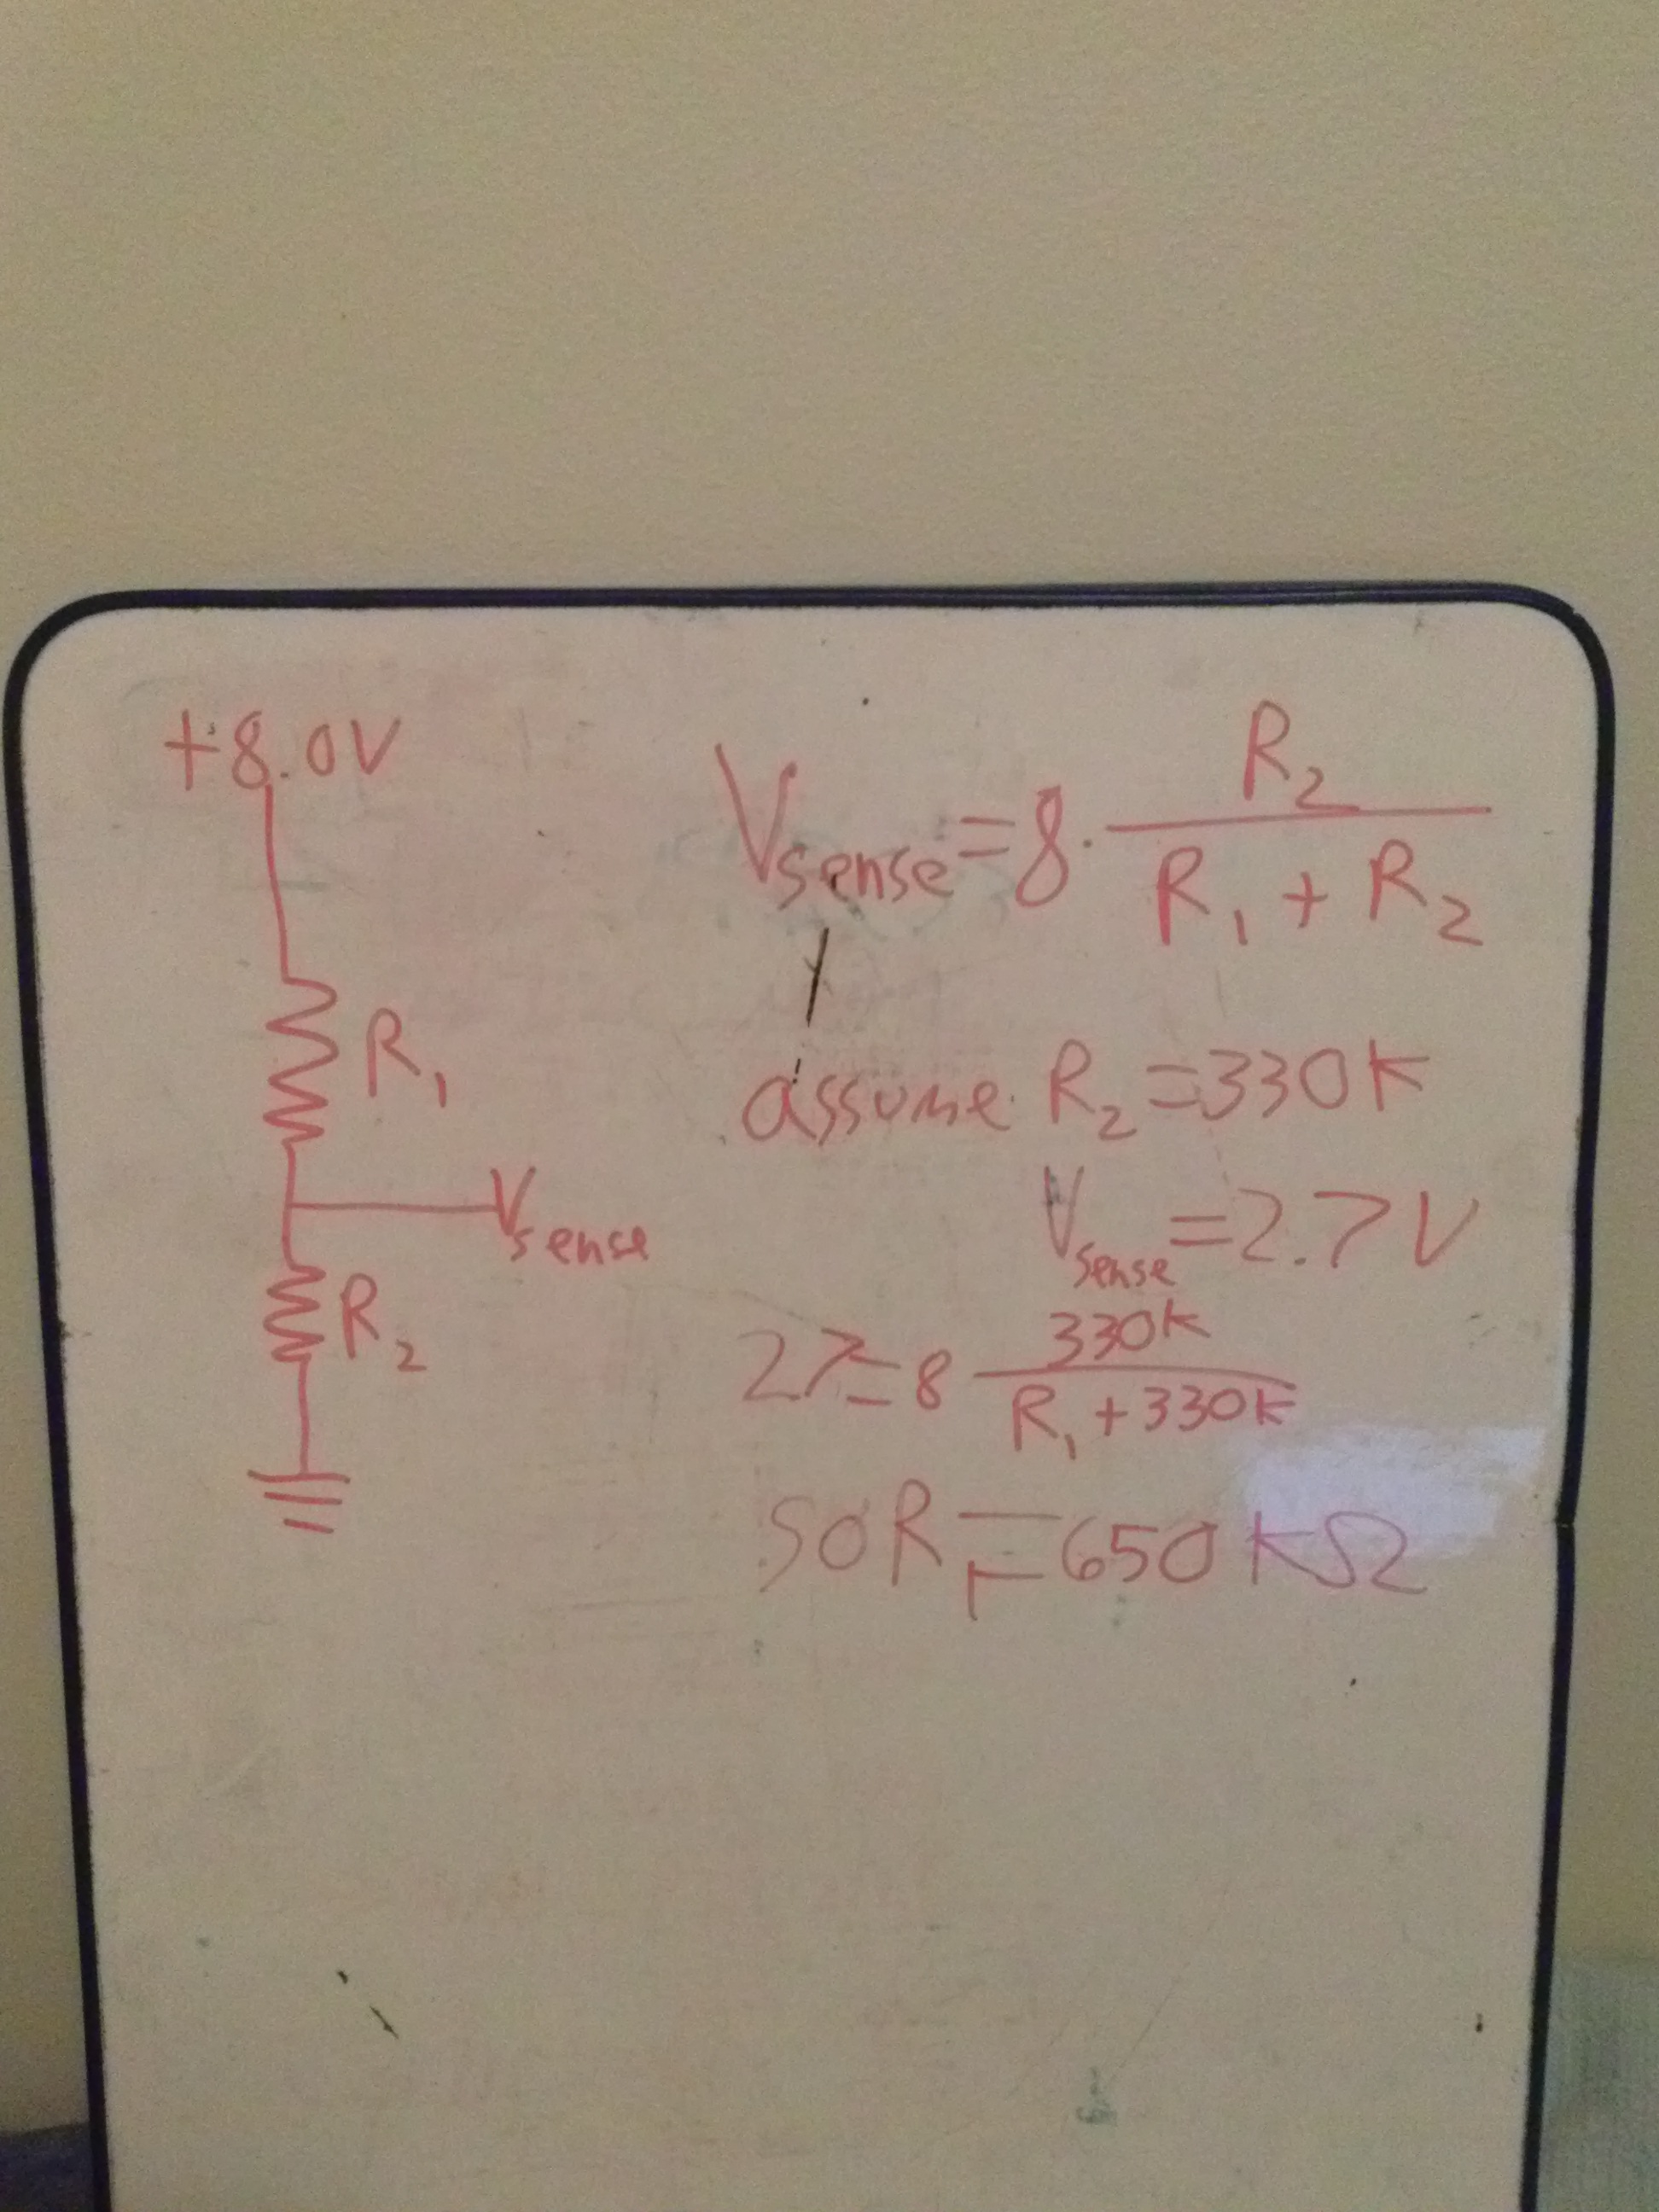 +8.0V
R1
Vsense
R2
Vsense = 8 · R2 / (R1 + R2)
assume R2 = 330K
Vsense = 2.7V
2.7 = 8 330K / (R1 + 330K)
so R1 = 650 KΩ